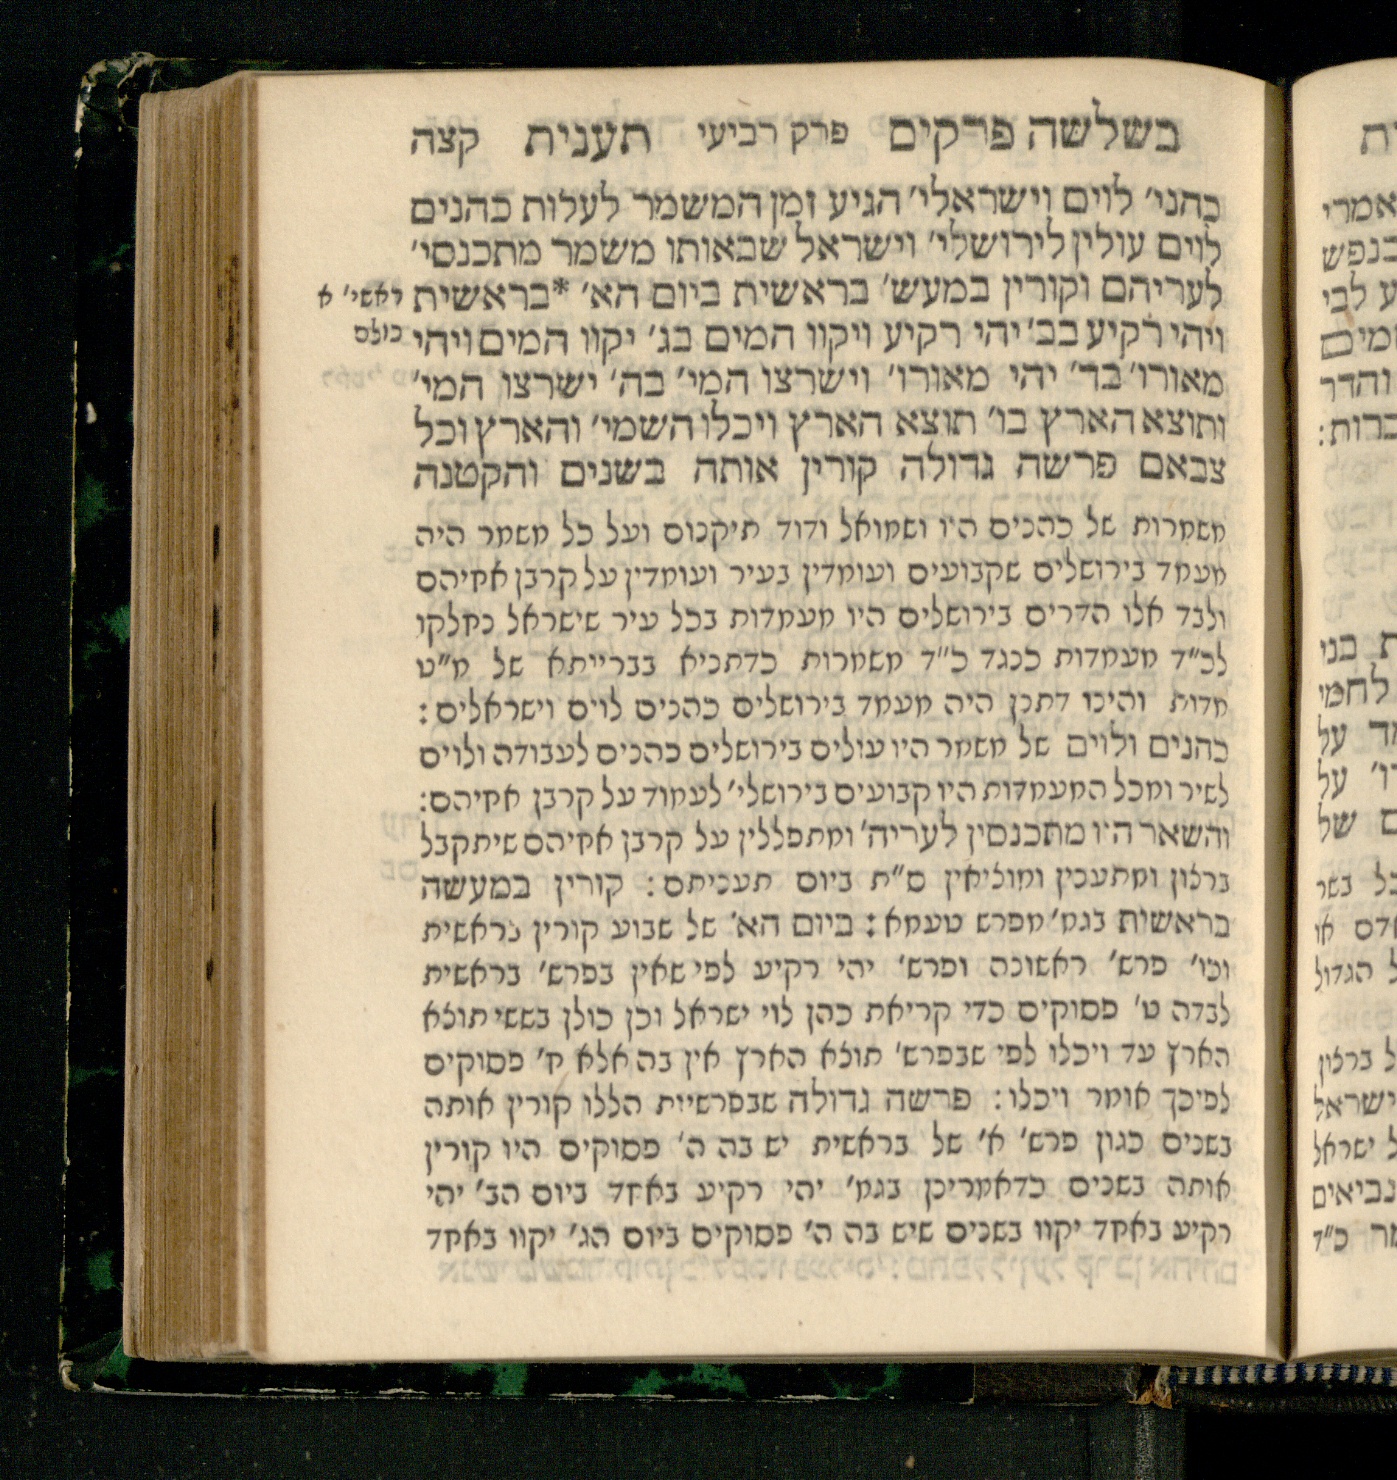 בשלשה פרקים פרק רביעי תענית קצה
כהני׳ לוים וישראלי׳ הגיע זמן המשמר לעלות כהנים
לוים עולין לירושלי׳ וישראל שבאותו משמר מתכנסי׳
לעריהם וקורין במעש׳ בראשית ביום הא׳ *בראשית
ראשי׳ א
ויהי רקיע בב׳ יהי רקיע ויקוו המים בג׳ יקוו המים ויהי
כולם
מאורו׳ בד׳ יהי מאורו׳ וישרצו המי׳ בה׳ ישרצו המי׳
ותוצא הארץ בו׳ תוצא הארץ ויכלו השמי׳ והארץ וכל
צבאם פרשה גדולה קורין אותה בשנים והקטנה
משמרות של כהנים היו ושמואל ודוד תיקנום ועל כל משמר היה
מעמד בירושלים שקבועים ועומדין בעיר ועומדין על קרבן אחיהם
ולבד אלו הדרים בירושלים היו מעמדות בכל עיר שישראל נחלקו
לכ״ד מעמדות כנגד כ״ד משמרות כדתניא בברייתא של מ״ט
מדות והינו דתנן היה מעמד בירושלים כהנים לוים וישראלים:
כהנים ולוים של משמר היו עולים בירושלים כהנים לעבודה ולוים
לשיר ומכל המעמדות היו קבועים בירושלי׳ לעמוד על קרבן אחיהם:
והשאר היו מתכנסין לעריה׳ ומתפללין על קרבן אחיהם שיתקבל
ברצון ומתענין ומוציאין ס״ת ביום תעניתם: קורין במעשה
בראשית בגמ׳ מפרש טעמא: ביום הא׳ של שבוע קורין בראשית
וכו׳ פרש׳ ראשונה ופרש׳ יהי רקיע לפי שאין בפרש׳ בראשית
לבדה ט׳ פסוקים כדי קריאת כהן לוי ישראל וכן כולן בששי תוצא
הארץ עד ויכלו לפי שבפרש׳ תוצא הארץ אין בה אלא ח׳ פסוקים
לפיכך אומר ויכלו: פרשה גדולה שבפרשיות הללו קורין אותה
בשנים כגון פרש׳ א׳ של בראשית יש בה ה׳ פסוקים היו קורין
אותה בשנים כדאמרינן בגמ׳ יהי רקיע באחד ביום הב׳ יהי
רקיע באחד יקוו בשנים שיש בה ה׳ פסוקים ביום הג׳ יקוו באחד